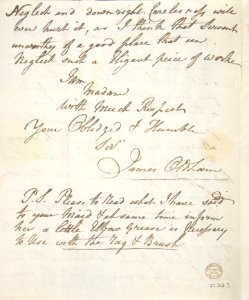 Neglect and downright Carelessness will
ever hurt it, as I think that Servant
unworthy of a good place that can
Neglect such a Elegant peice of Work
I am
Madam
With Much Respect
Your Obledged & Humble
Sert
James Oldham
P.S. Please to Read what I have said
to your Maid & at same time inform
her a little Elbow Grease is Necessary
to Use with the Rag & Brush